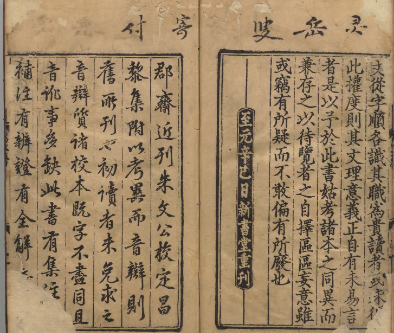 灵岳叟
寄付
文從字順各識其職為貴讀者或未得
此權度則其文理意義正自有未易言
者是以予於此書姑考諸本之同異而
兼存之以待覽者之自擇區區妄意雖
或竊有所疑而不敢偏有所廢也
至元辛巳日新書堂重刊
郡齋近刊朱文公校定昌
黎集附以考異而音辯則
舊所刊也初讀者未免求之
音辯質諸校本既字不盡同且
音訛事多缺此書有集注
補注有辨證有全解